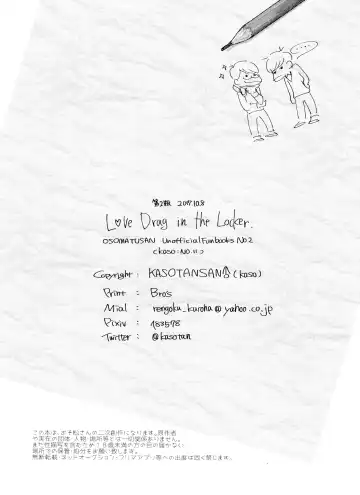 第2版 2017.10.8
Love Drag in the Locker.
OSOMATUSAN Unofficial Funbooks No.2
Copyright : KASOTANSAN (kaso)
Print : Bro's
Mial : rengoku_kuroha@yahoo.co.jp
Pixiv : 183578
Twitter : @kasotan
この本は、お子松さんの二次創作になります。原作者
や実在の団体・人物・箇所等とは一切関係ありません。
また性描写を含むため18歳未満の方の目の届かない
箇所での保管・処分をお願い致します。
無断転載・ネットオークション・フリマアプリ等への出展は固く禁じます。